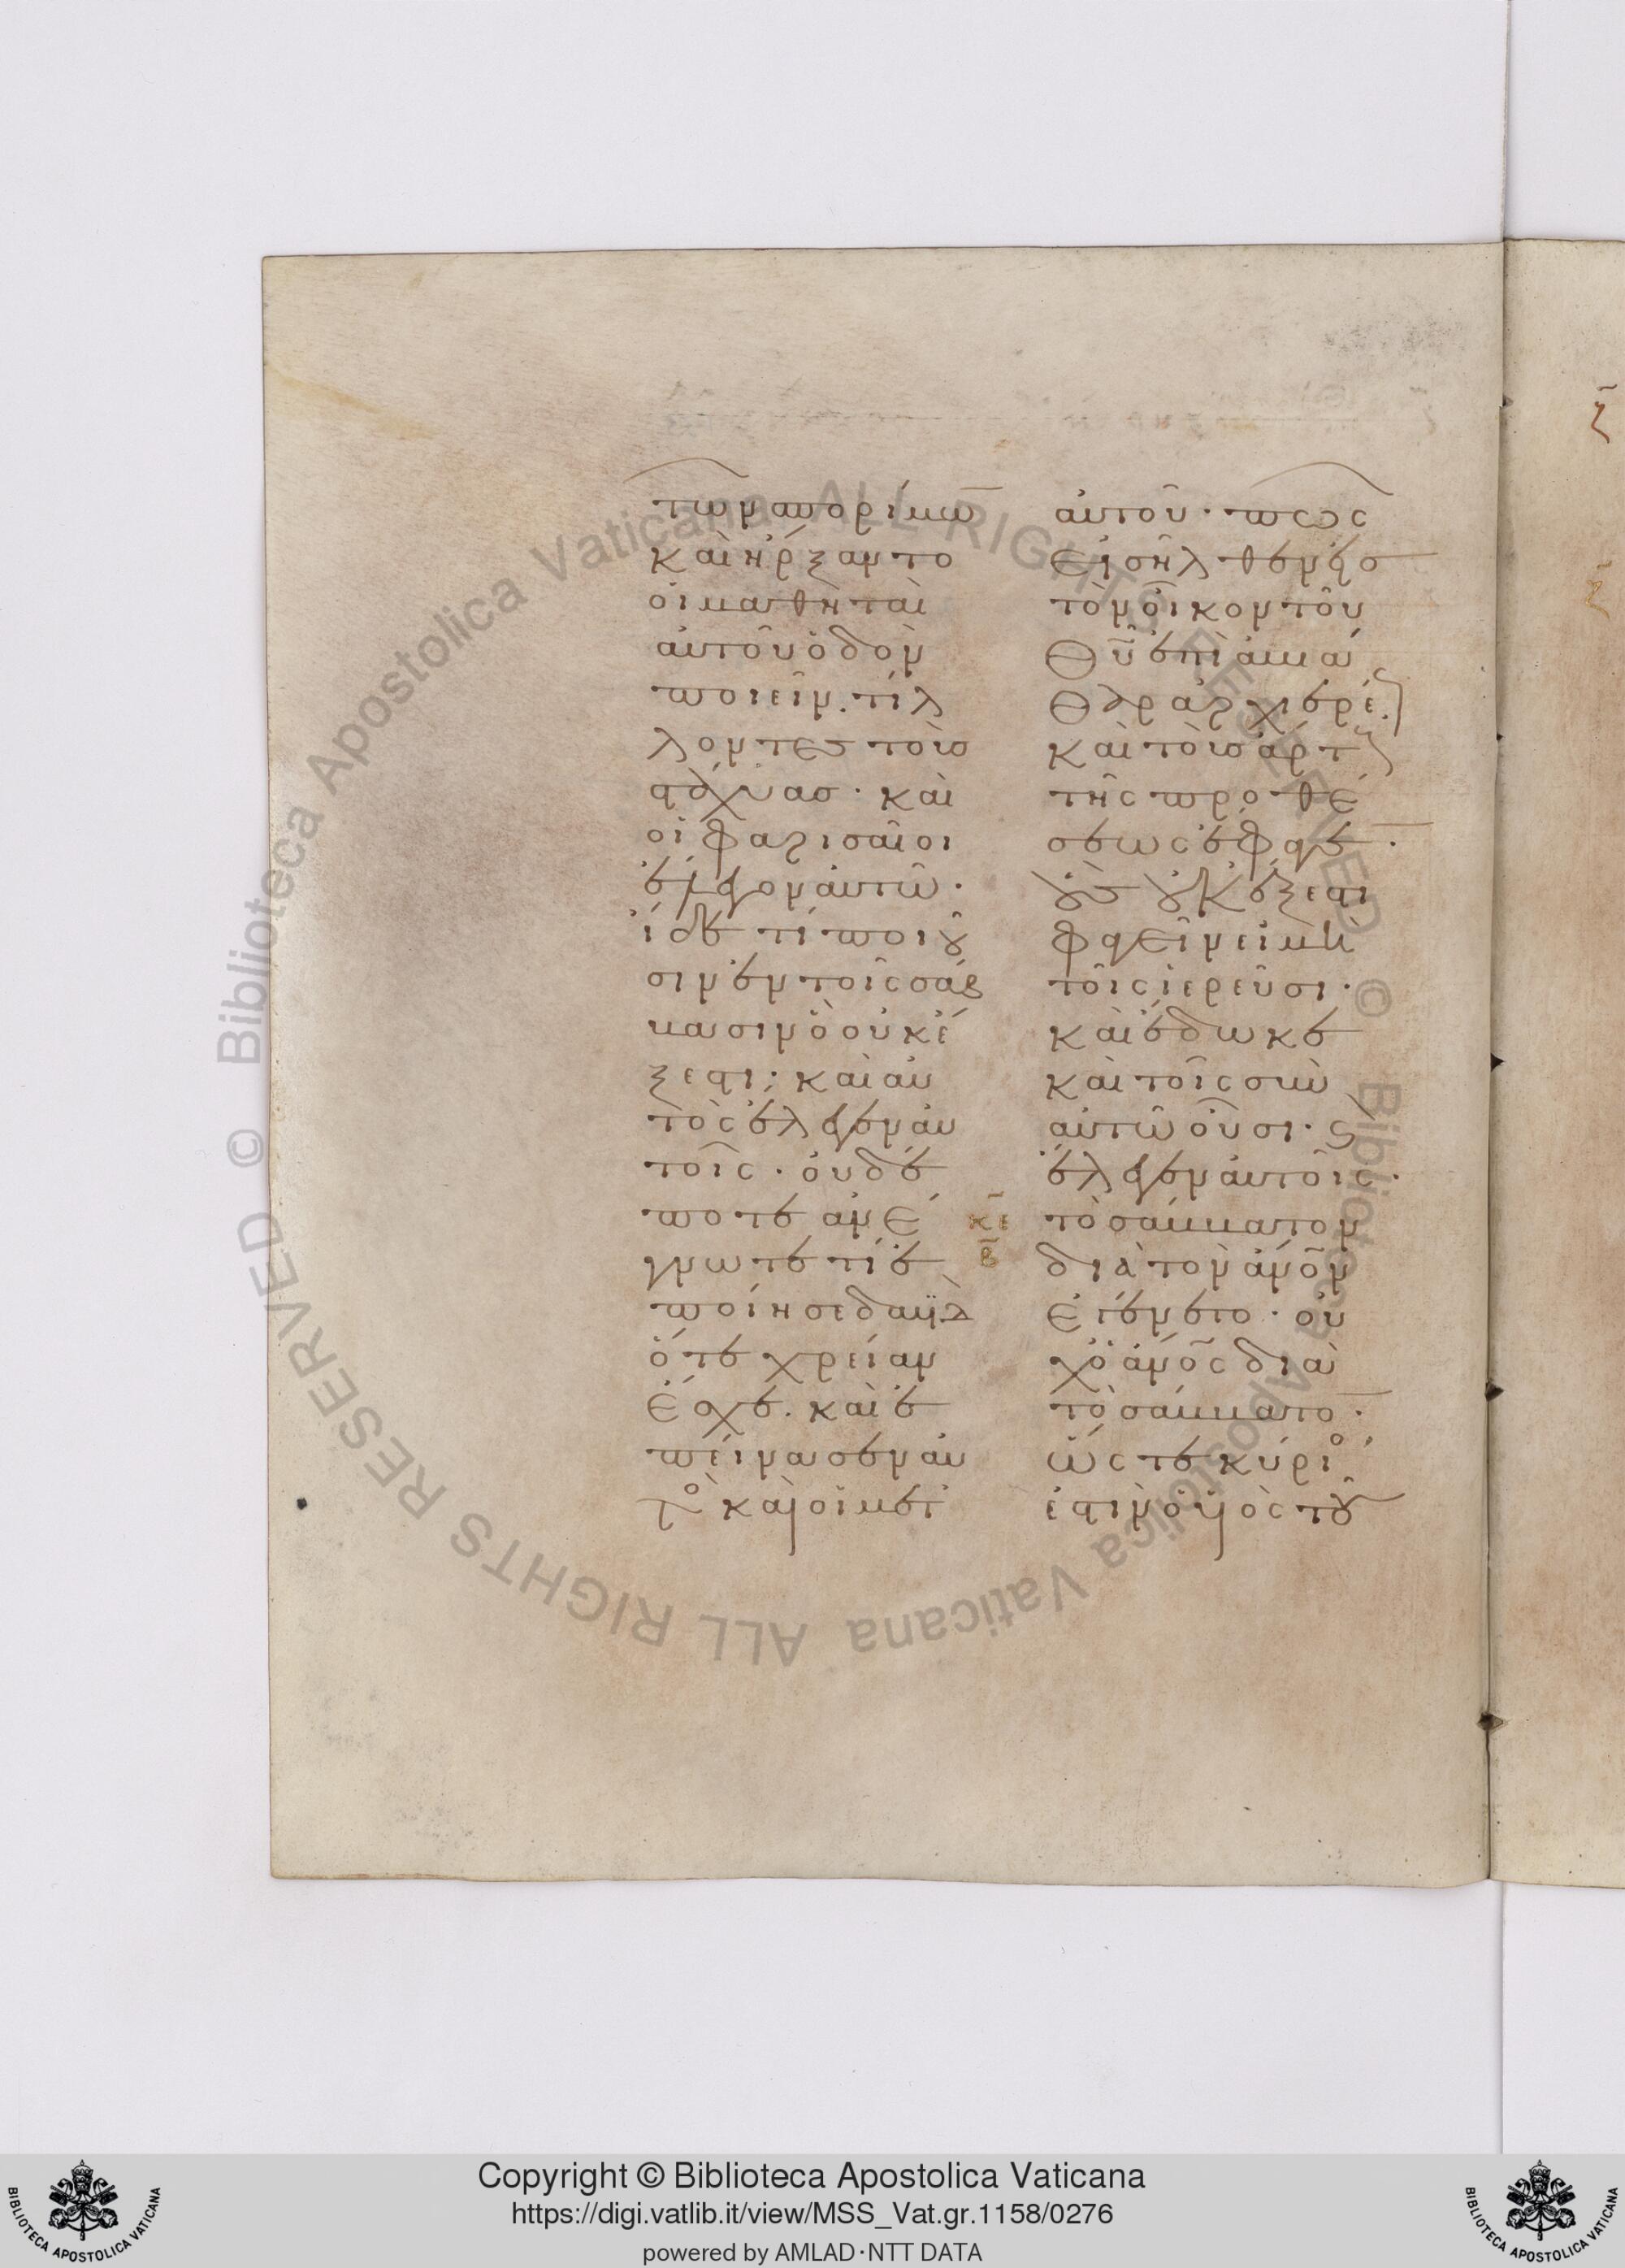 τῶν σπορίμω̅
καὶ ἤρξαντο
οἱ μαθηταὶ
αὐτοῦ ὁδὸν
ποιεῖν· τίλ
λοντες τοὺσ
στάχυασ· καὶ
οἱ φαρισαῖοι
ἔλεγον αὐτῶ·
ἴδε τί ποιοῦ
σιν ἐν τοῖς σάβ
βασιν ὃ οὐκ ἔ
ξεστι; καὶ αὐ
τὸς ἔλεγεν αὐ
τοῖς· οὐδέ
ποτε ἀνέ
γνωτε τί ἐ
ποίησε δαυῒδ
ὅτε χρείαν
ἔσχε· καὶ ἐ
πείνασεν αὐ
τὸ(ς) καὶ οἱ μετ
αὐτοῦ· πῶς
εἰσῆλθεν εἰσ
τὸν οἶκον τοῦ
θ̅υ̅ ἐπὶ ἀβιά
θαρ ἀρχιερέ(ως)
καὶ τοὺσ ἄρτ(ους)
τῆς προθέ
σεως ἔφαγε̅·
οὓσ οὐκ ἔξεστι
φαγεῖν εἰ μὴ
τοῖς ἱερεῦσι·
καὶ ἔδωκε
καὶ τοῖς σὺν
αὐτῶ οὖσι· ϛ
ἔλεγεν αὐτοῖς·
κ̅ε̅ τὸ σάββατον
β̅ διὰ τὸν ἄν̅ο̅ν
ἐγένετο· οὐ
χ ὁ ἄν̅ο̅ς διὰ
τὸ σάββατο̅·
ὥςτε κύριό(ς)
ἐστιν ὁ υἱὸς τοῦ
Copyright © Biblioteca Apostolica Vaticana
https://digi.vatlib.it/view/MSS_Vat.gr.1158/0276
powered by AMLAD·NTT DATA
BIBLIOTECA APOSTOLICA VATICANA
BIBLIOTECA APOSTOLICA VATICANA
© Biblioteca Apostolica Vaticana ALL RIGHTS RESERVED
© Biblioteca Apostolica Vaticana ALL RIGHTS RESERVED